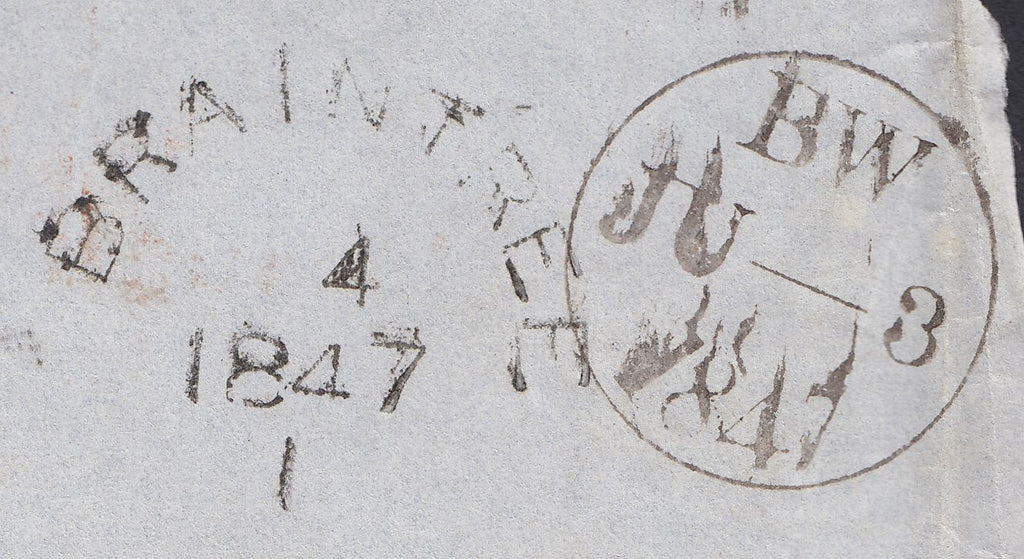 BRAINTREE
4
1847
1
BW
JU
3
1847